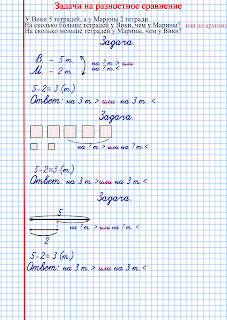 Задачи на разностное сравнение
У Вики 5 тетрадей, а у Марины 2 тетради.
На сколько больше тетрадей у Вики, чем у Марины? или по-другому
На сколько меньше тетрадей у Марины, чем у Вики?
Задача.
В. - 5 т.
на ? т. > или
М. - 2 т.
на ? т. <
5-2=3 (т.)
Ответ: на 3 т. > или на 3 т. <
Задача.
на ? т. > или на ? т. <
5-2=3 (т.)
Ответ: на 3 т. > или на 3 т. <
Задача.
5
2
5-2=3 (т.)
Ответ: на 3 т. > или на 3 т. <